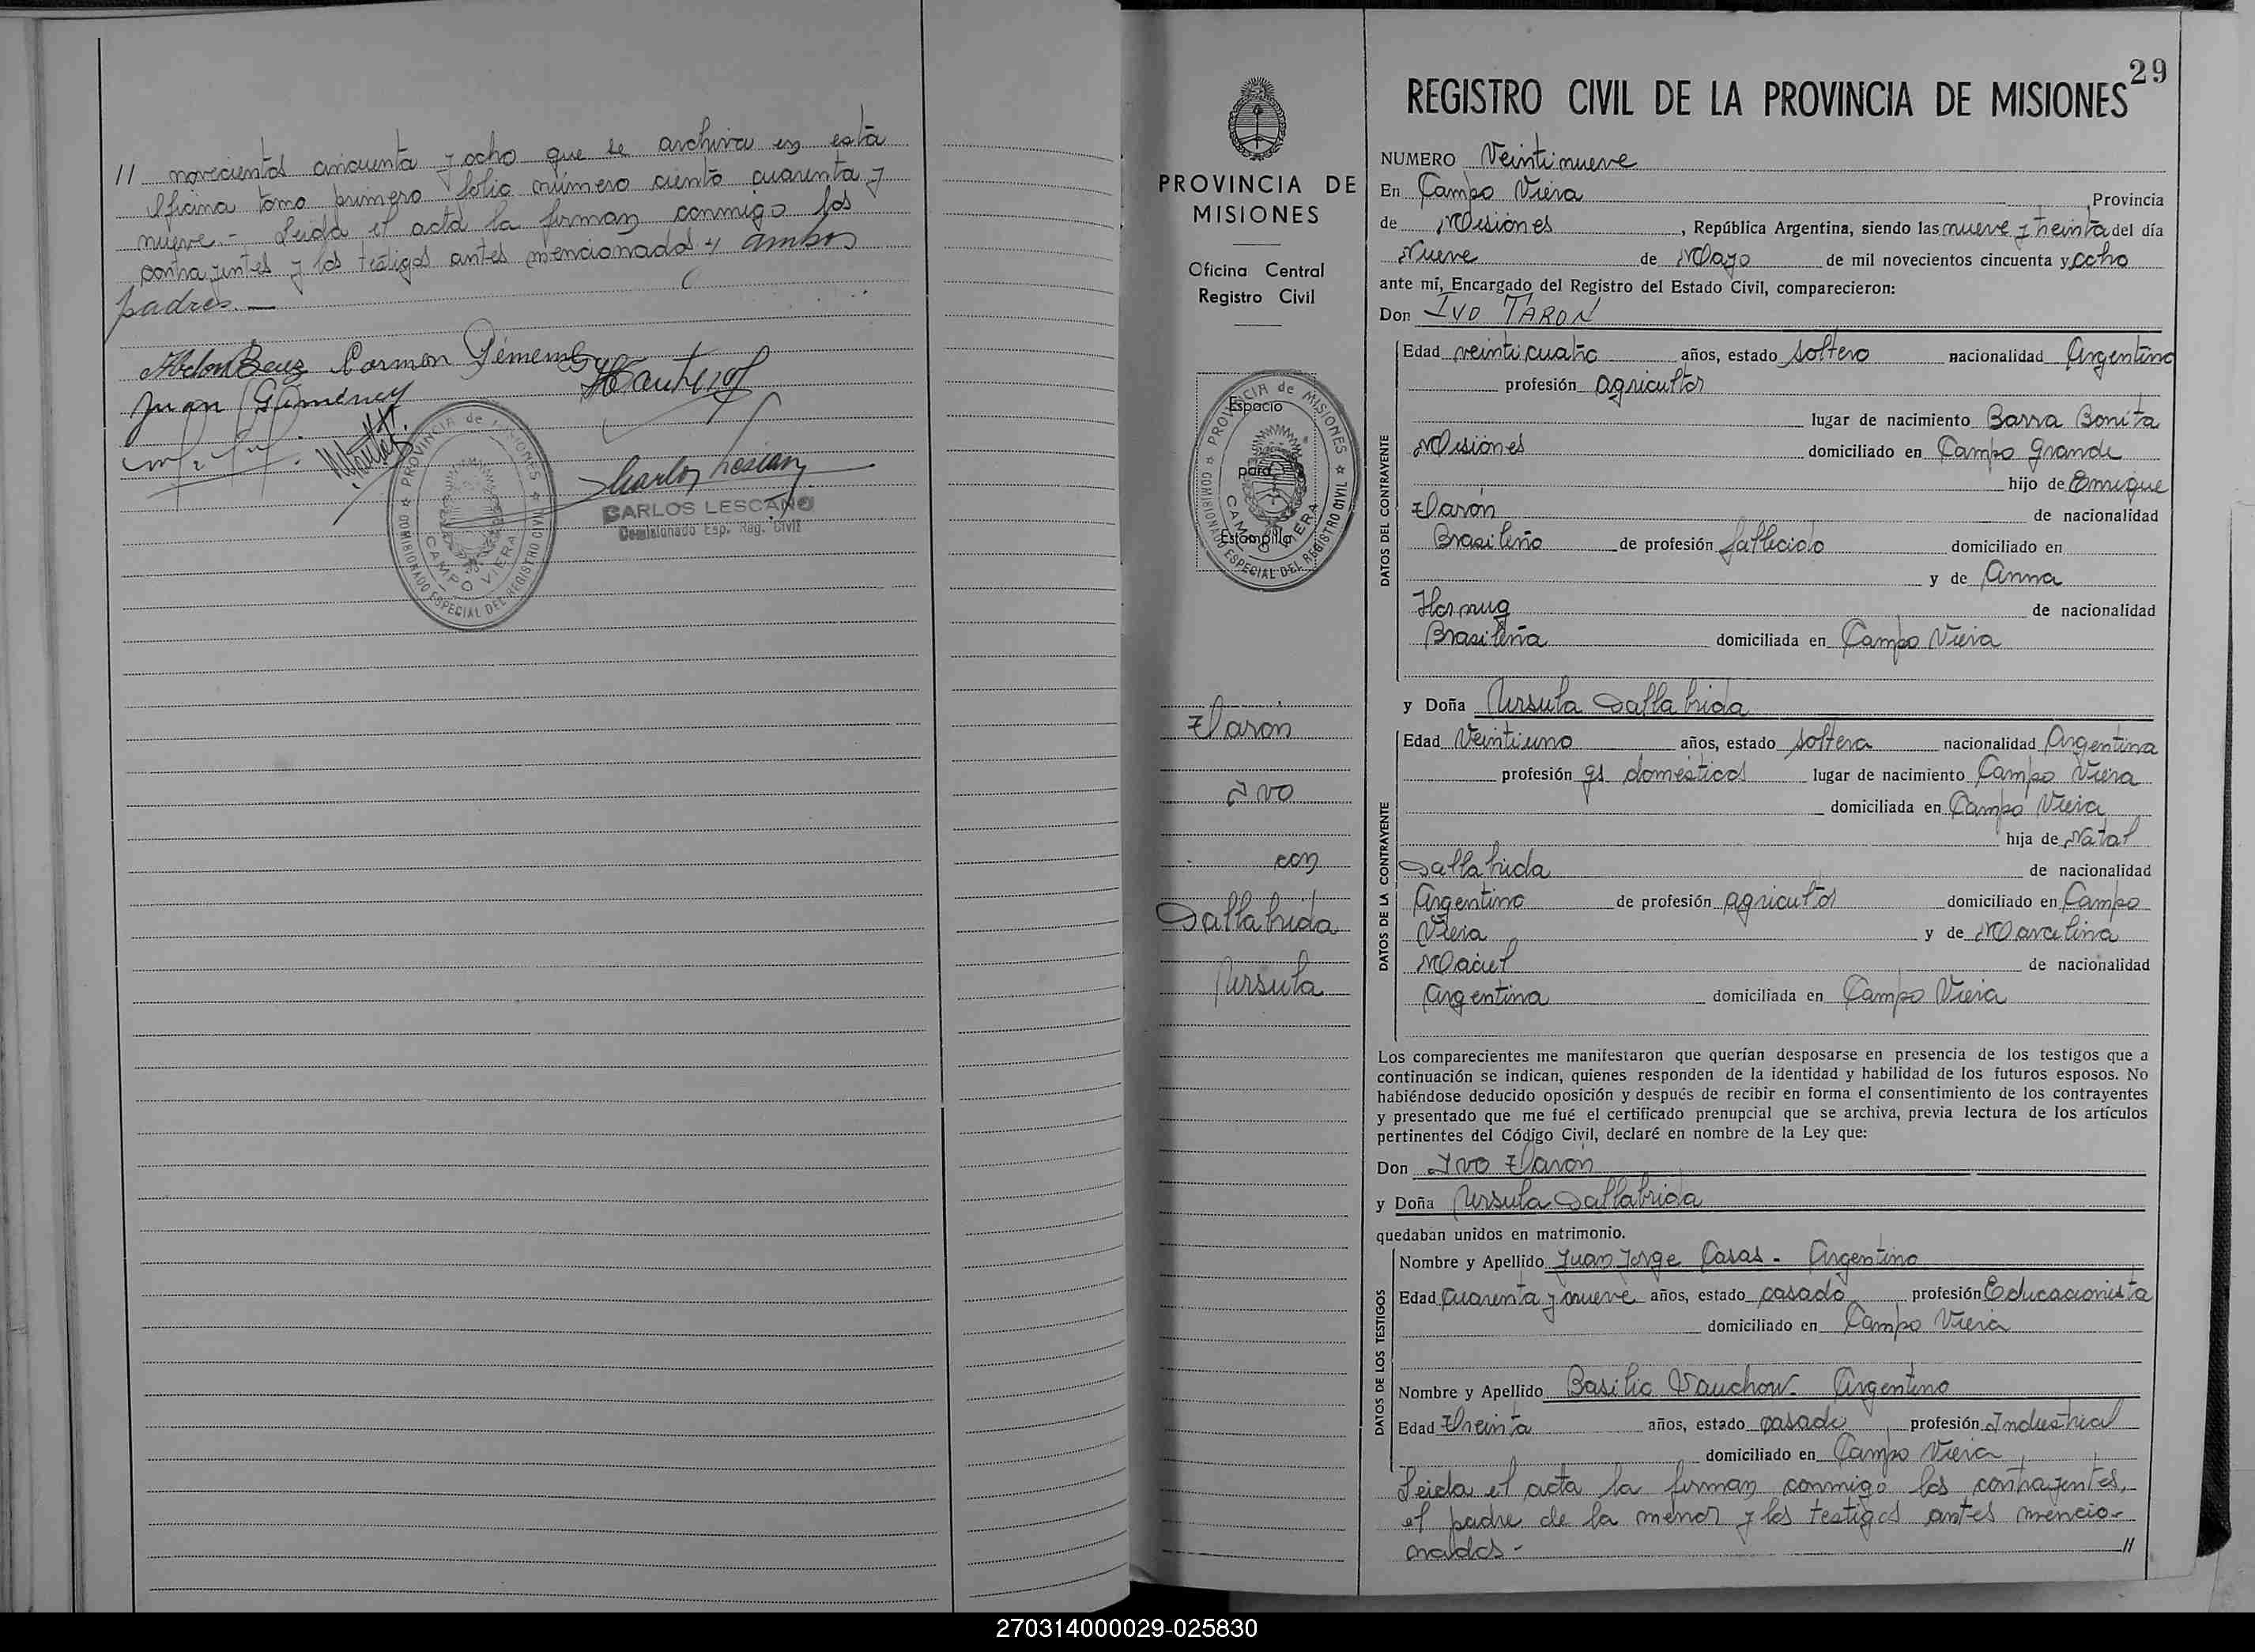 // novecientos cincuenta y ocho que se archiva en esta
Oficina tomo primero folio número ciento cuarenta y
nueve.- Leida el acta la firman conmigo los
contrayentes y los testigos antes mencionados y ambos
padres.—
Juan Giménez
PROVINCIA de MISIONES
COMISIONADO ESPECIAL DEL REGISTRO CIVIL
CAMPO VIERA
CARLOS LESCANO
Comisionado Esp. Reg. Civil
PROVINCIA DE
MISIONES
Oficina Central
Registro Civil
Espacio
para
Estampilla
PROVINCIA de MISIONES
COMISIONADO ESPECIAL DEL REGISTRO CIVIL
CAMPO VIERA
Tarón
Ivo
con
Dallabrida
Ursula
29
REGISTRO CIVIL DE LA PROVINCIA DE MISIONES
NUMERO Veintinueve
En Campo Viera, Provincia
de Misiones, República Argentina, siendo las nueve y treinta del día
Nueve de Mayo de mil novecientos cincuenta y ocho
ante mí, Encargado del Registro del Estado Civil, comparecieron:
Don IVO TARON
DATOS DEL CONTRAYENTE
Edad veinticuatro años, estado soltero nacionalidad Argentino
profesión agricultor
lugar de nacimiento Barra Bonita
Misiones domiciliado en Campo Grande
hijo de Enrique
Tarón de nacionalidad
Brasileño de profesión fallecido domiciliado en
y de Anna
Hornug de nacionalidad
Brasileña domiciliada en Campo Viera
y Doña Ursula Dallabrida
DATOS DE LA CONTRAYENTE
Edad Veintiuno años, estado soltera nacionalidad Argentina
profesión qs. domésticos lugar de nacimiento Campo Viera
domiciliada en Campo Viera
hija de Natal
Dallabrida de nacionalidad
Argentino de profesión agricultor domiciliado en Campo
Viera y de Marcelina
Maciel de nacionalidad
Argentina domiciliada en Campo Viera
Los comparecientes me manifestaron que querían desposarse en presencia de los testigos que a
continuación se indican, quienes responden de la identidad y habilidad de los futuros esposos. No
habiéndose deducido oposición y después de recibir en forma el consentimiento de los contrayentes
y presentado que me fué el certificado prenupcial que se archiva, previa lectura de los artículos
pertinentes del Código Civil, declaré en nombre de la Ley que:
Don Ivo Tarón
y Doña Ursula Dallabrida
quedaban unidos en matrimonio.
DATOS DE LOS TESTIGOS
Nombre y Apellido Juan Jorge Casas - Argentino
Edad Cuarenta y nueve años, estado casado profesión Educacionista
domiciliado en Campo Viera
Nombre y Apellido Basilio Wauchow - Argentino
Edad Treinta años, estado casado profesión Industrial
domiciliado en Campo Viera
Leida el acta la firman conmigo los contrayentes,
el padre de la menor y los testigos antes mencio-
nados - //
270314000029-025830